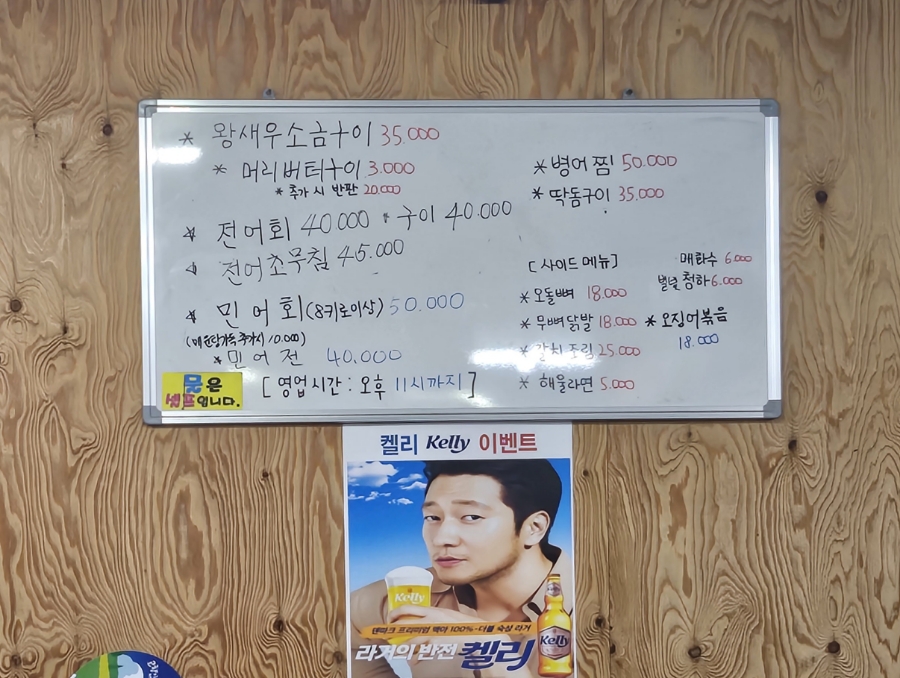 * 왕새우소금구이 35.000
* 머리버터구이 3.000
* 추가 시 반판 20.000
* 전어회 40.000 * 구이 40.000
* 전어초무침 45.000
* 민어회 (8키로이상) 50.000
10.000)
* 민어전 40.000
[영업시간 : 오후 11시까지]
물은
셀프입니다.
* 병어찜 50.000
* 딱돔구이 35.000
[사이드 메뉴]
* 오돌뼈 18.000
* 무뼈닭발 18.000
* 갈치조림 25.000
* 해물라면 5.000
매화수 6.000
별빛청하 6.000
* 오징어볶음
18.000
켈리 Kelly 이벤트
Kelly
덴마크 프리미엄 맥아 100%-더블 숙성 라거
라거의 반전 켈리
Kelly